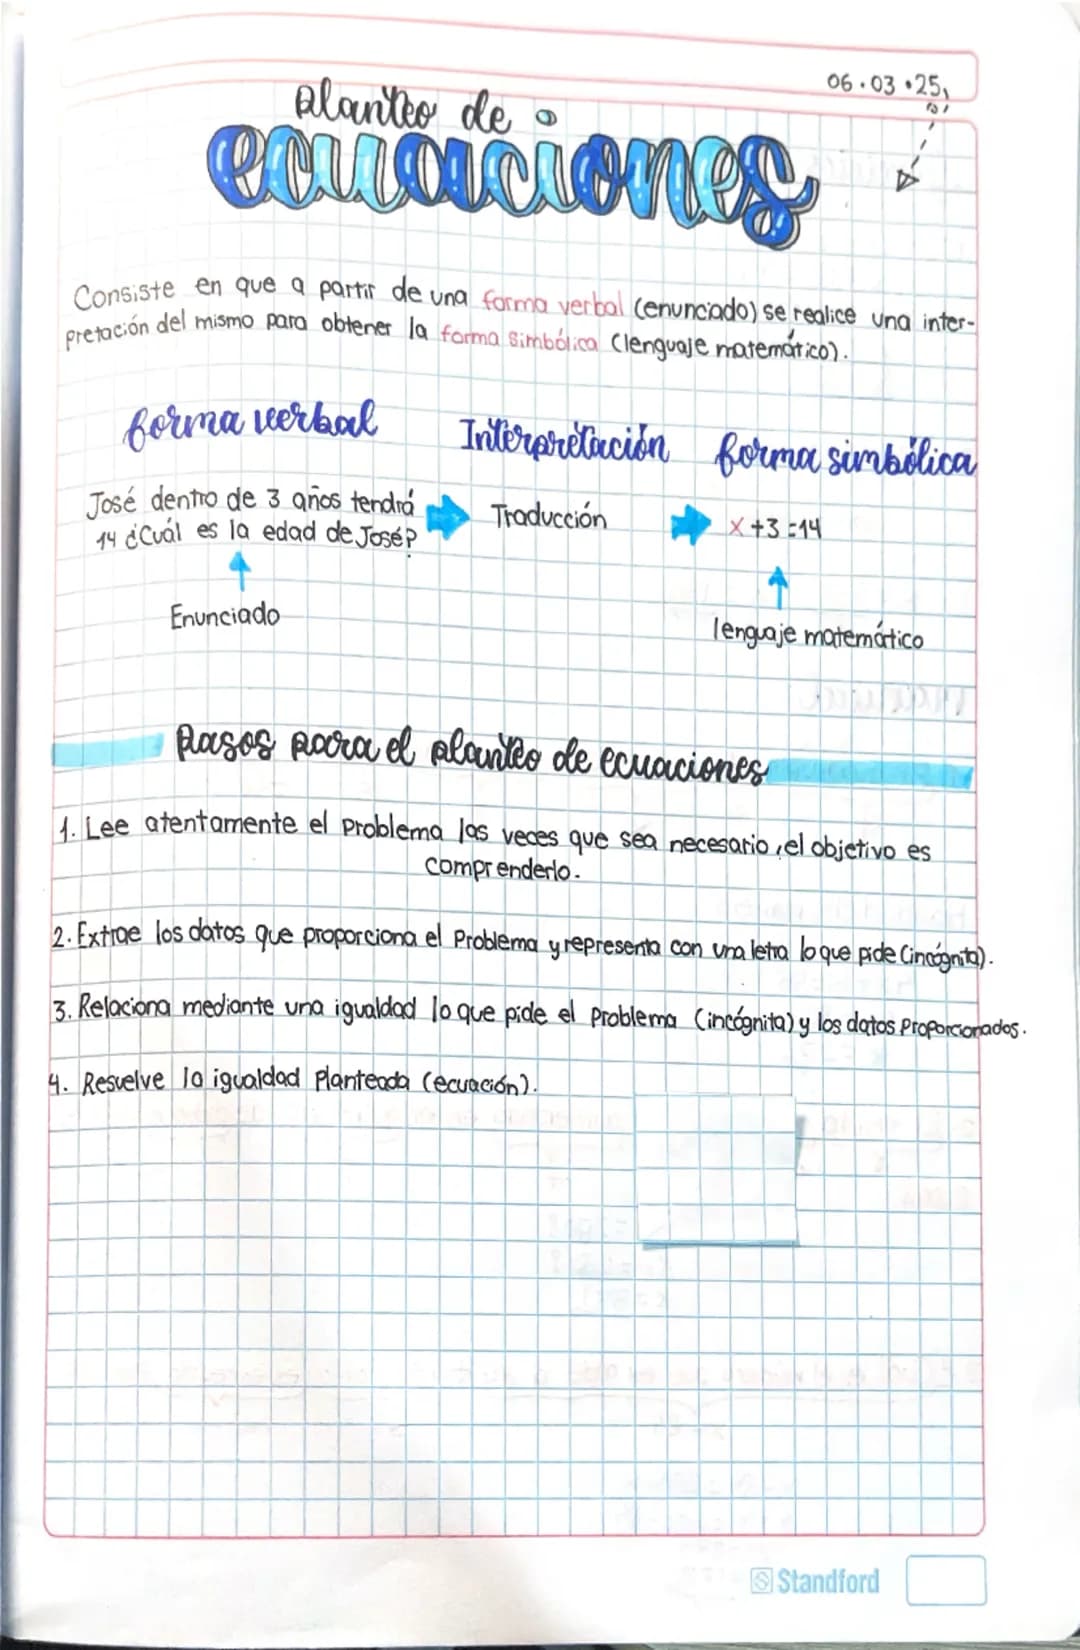 06.03.25
Planteo de
ecuaciones
Consiste en que a partir de una forma verbal (enunciado) se realice una inter-
pretación del mismo para obtener la forma simbólica (lenguaje matemático).
forma verbal Interpretación forma simbólica
José dentro de 3 años tendrá
14 ¿Cuál es la edad de José? Traducción x+3=14
Enunciado
lenguaje matemático
Pasos para el planteo de ecuaciones
1. Lee atentamente el problema las veces que sea necesario, el objetivo es
comprenderlo.
2. Extrae los datos que proporciona el problema y representa con una letra lo que pide (incógnita).
3. Relaciona mediante una igualdad lo que pide el problema (incógnita) y los datos proporcionados.
4. Resuelve la igualdad planteada (ecuación).
Standford